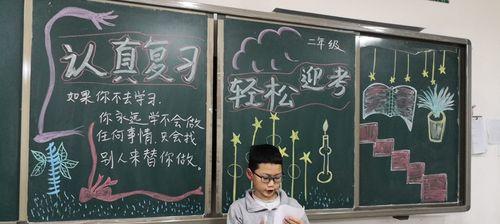 认真复习
如果你不去学习.
你永远学不会做
任何事情,只会找
别人来替你做。
二年级
轻松迎考